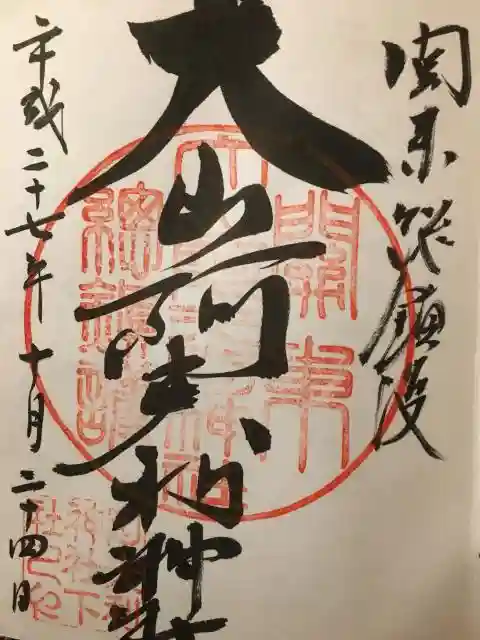 関東総鎮護
大山阿夫利神社
平成二十七年十月二十四日
關東
總鎮護
阿夫利
神社下
社之印